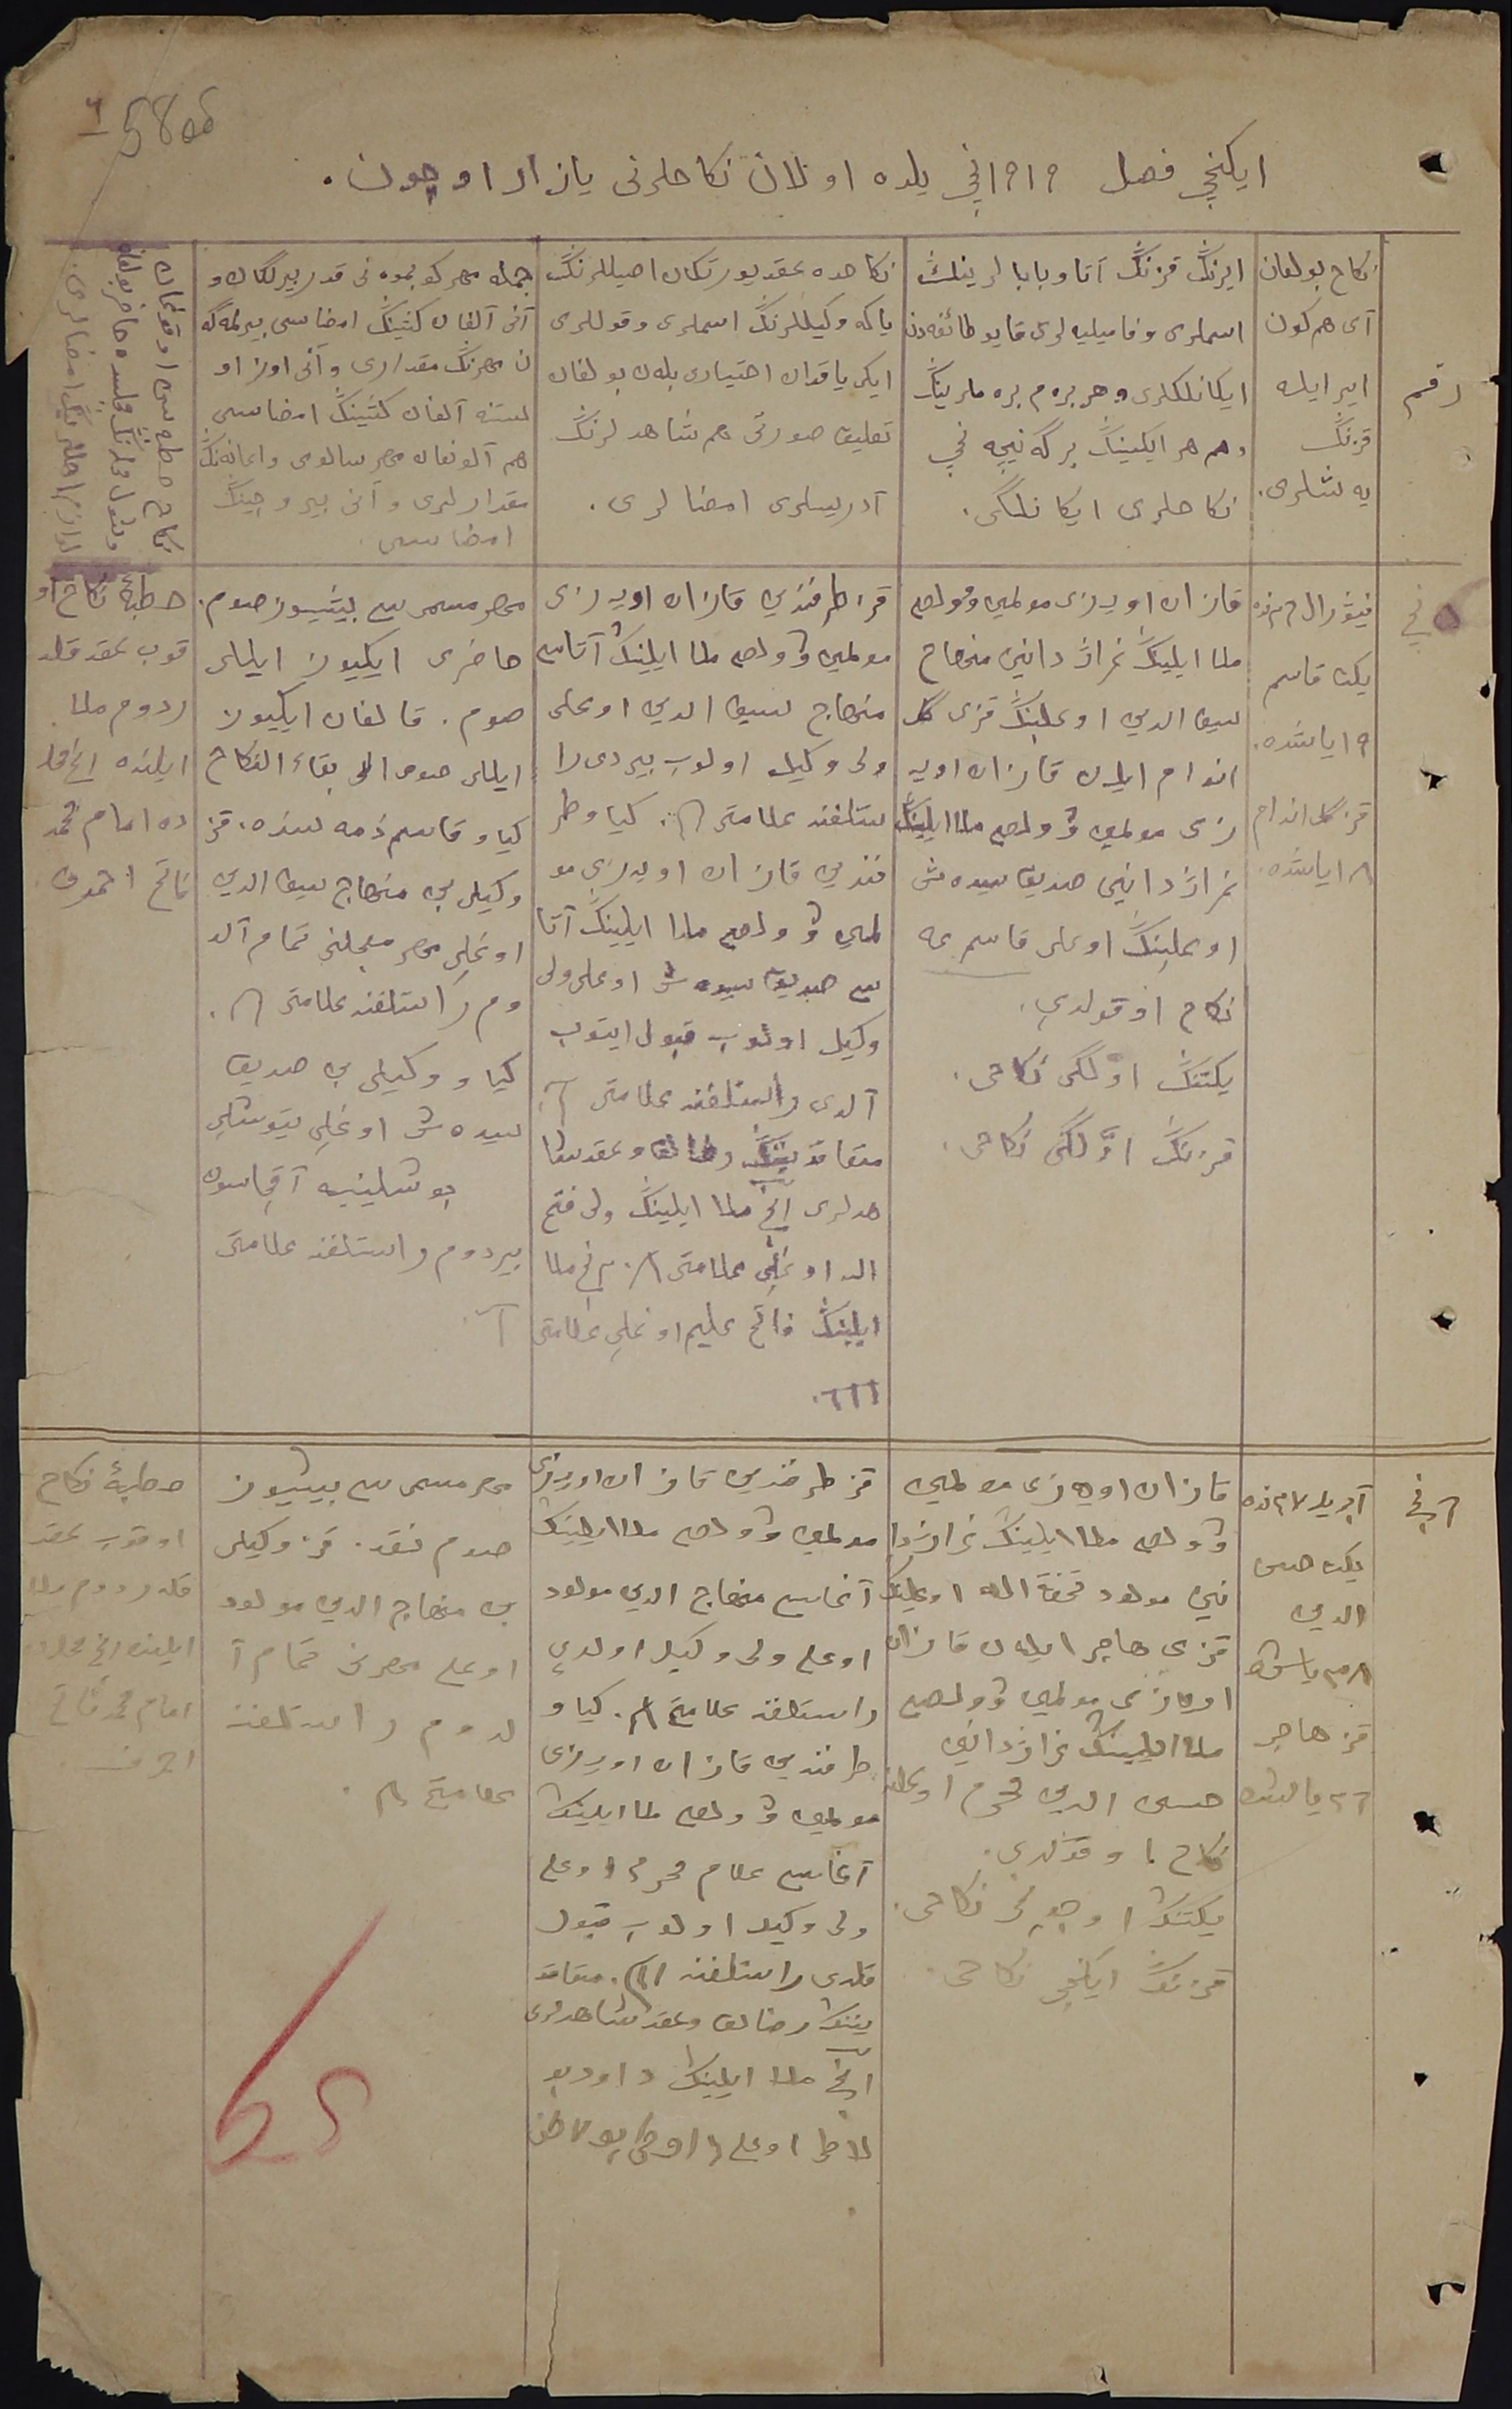 5806
ایکنچی فصل ۱۹۱۹نچی یلده اولان نکاحلرنی یازار اوچون.
رقم
نکاح بولغان
آی هم کون
ایر ایله
قزنڭ
یه شلری.
ایرنڭ قزنڭ آتا و بابالرینڭ
اسملری و فامیلیه لری قایو طائفه دن
ایکانلکلری و هر بره م بره مارینڭ
و هم هر ایکینڭ برگه نیچه نچی
نکاحلری ایکانلگی.
نکاحده عقد یورتکان اصیللرنڭ
یا که وکیللرنڭ اسملری و قوللری
ایکی یاقدان اختیاری بلەن بولغان
تعلیق صورتی هم شاهدلرنڭ
آدریسلری امضالری.
جمله مهر کوبمه نی قدر بیرلگان و
آنی آلغان کشینڭ امضاسی بیرلمه گه
ن مهرنڭ مقداری و آنی اوز او
ستنه آلغان کشینڭ امضاسی
هم آلونغان مهر سالوی و اعانه نڭ
مقدارلری و آنی بیروچینڭ
امضاسی.
نکاح خطبه سی اوقوغان
و شول محله نڭ مجلسده حاضر بولغان
امضالری.
۵نچی
فیورال ۲۳نده
یکت قاسم
۱۹ یاشنده.
قز گل اندام
۱۸ یاشنده.
قازان اویزی مولمی وولص
ملا ایلینڭ غراژدانین منهاج
سیف الدین اوغلینڭ قزی گل
اندام ایلەن قازان اویه
زی مولمی وولص ملا ایلینڭ
غراژدانینی صدیق سیده ش
اوغلینڭ اوغلی قاسم غه
نکاح اوقولدی.
یکتنڭ اوّلگی نکاحی.
قزنڭ اوّلگی نکاحی.
قز طرفندین قازان اویه زی
مولمی وولص ملا ایلینڭ آتاسی
منهاج سیف الدین اوغلی
ولی وکیل اولوب بیردی را
ستلغنه علامتی. کیاو طر
فندین قازان اویه زی مو
لمی وولص ملا ایلینڭ آتا
سی صدیق سیده ش اوغلی ولی
وکیل اولوب قبول ایتوب
آلدی راستلغنه علامتی
متعاقدیننڭ رضالق و عقد شا
هدلری ۱نچی ملا ایلینڭ ولی فتح
الله اوغلی علامتی. ۲نچی ملا
ایلینڭ فاتح علیم اوغلی علامتی
مهر مسمی سی بیشیوز صوم.
حاضری ایکییوز ایللی
صوم. قالغان ایکییوز
ایللی صوم الی بقاء النکاح
کیاو قاسم ذمه سنده. قز
وکیلی بن منهاج سیف الدین
اوغلی مهر معجلنی تمام آلد
وم راستلغنه علامتی.
کیاو وکیلی بن صدیق
سیده ش اوغلی یتوشلی
بو شلینیه آقچاسون
بیردوم راستلغنه علامتی
خطبۀ نکاح او
قوب عقد قلد
ردوم ملا
ایلنده ۱نچی محله
ده امام محمد
فاتح احمدف
۶نچی
آپریل ۲۷نده
یکت حسن
الدین
۳۸ یاشنده
قز هاجر
۲۶ یاشنده
قازان اویه زی مولمی
وولص ملا ایلینڭ غراژدا
نین مولود تحفة الله اوغلینڭ
قزی هاجر ایلەن قازان
اویه زی مولمی وولص
ملا ایلینڭ غراژدانین
حسن الدین محرم اوغلینه
نکاح اوقولدی.
یکتنڭ اوچونچی نکاحی.
قزنڭ ایکنچی نکاحی.
قز طرفندین قازان اویه زی
مولمی وولص ملا ایلینڭ
آغاسی منهاج الدین مولود
اوغلی ولی وکیل اولدی
راستلغنه علامتی. کیاو
طرفندین قازان اویه زی
مولمی وولص ملا ایلینڭ
آغاسی علام محرم اوغلی
ولی وکیل اولوب قبول
قلدی راستلغنه. متعاقد
یننڭ رضالق و عقد شاهدلری
۱نچی ملا ایلینڭ داود بو
لاط اوغلی
مهر مسمی سی بیشیوز
صوم نقد. قز وکیلی
بن منهاج الدین مولود
اوغلی مهرنی تمام آ
لدوم راستلغنه
علامتی.
خطبۀ نکاح
اوقوب عقد
قلدردوم ملا
ایلنده ۱نچی محله ده
امام محمد فاتح
احمدف